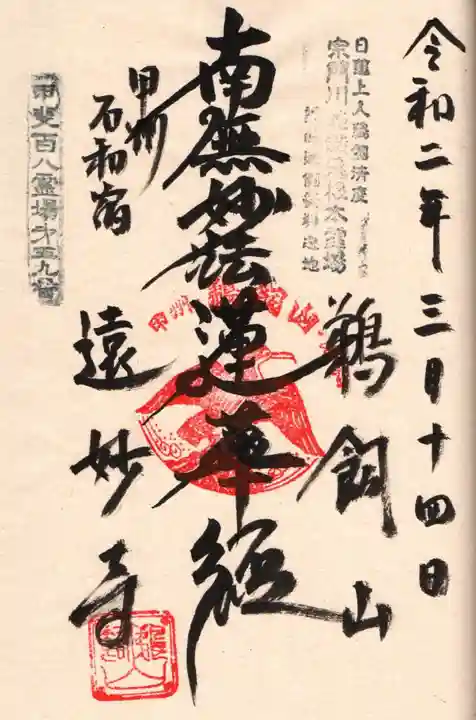 令和二年三月十四日
日蓮上人鵜飼済度
宗門川施餓鬼根本霊場
鵜飼山
南無妙法蓮華経
甲州
石和宿
遠妙寺
甲斐百八霊場第五九番